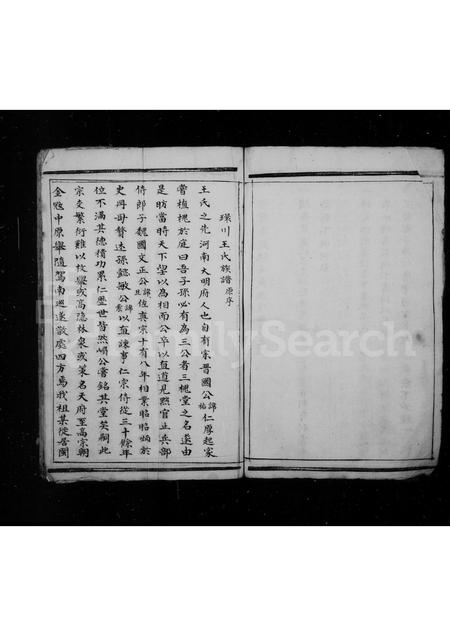 璞川王氏族譜原序
王氏之先河南大明府人也自有宋晉國公諱祐仁厚起家
嘗植槐於庭曰吾子孫必有為三公者三槐堂之名遂由
是昉當時天下望以為相而公卒以直道見黜官止兵部
侍郎子魏國文正公諱旦位真宗十有八年相業昭昭炳於
史冊毋贅述孫懿敏公諱素以直諫事仁宗侍從三十餘年
位不滿其德積功累仁奕世皆然嵋公嘗銘其堂矣嗣此
宗支繁衍難以枚舉或高隱林泉或策名天府至高宗朝
金虺中原舉隨駕南巡遂散處四方焉我祖某從居閩
FamilySearch